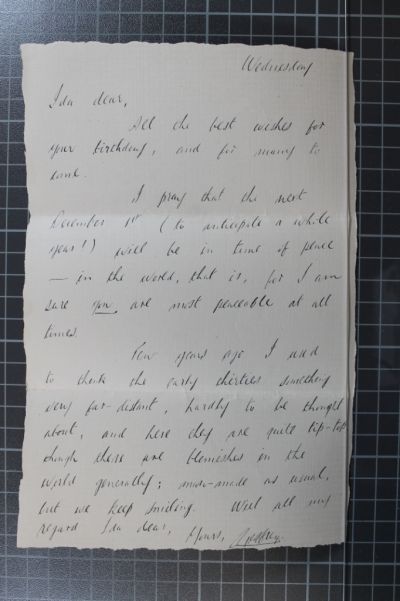 Wednesday
Ida dear,
All the best wishes for
your birthday, and for many to
come.
I pray that the next
December 1st (to anticipate a whole
year!) will be in time of peace
— in the world, that is, for I am
sure you are most peaceable at all
times.
Few years ago I used
to think the early thirties something
very far-distant, hardly to be thought
about, and here they are quite tip-top
though there are blemishes in the
world generally; man-made as usual,
but we keep smiling. With all my
regard Ida dear, Yours,